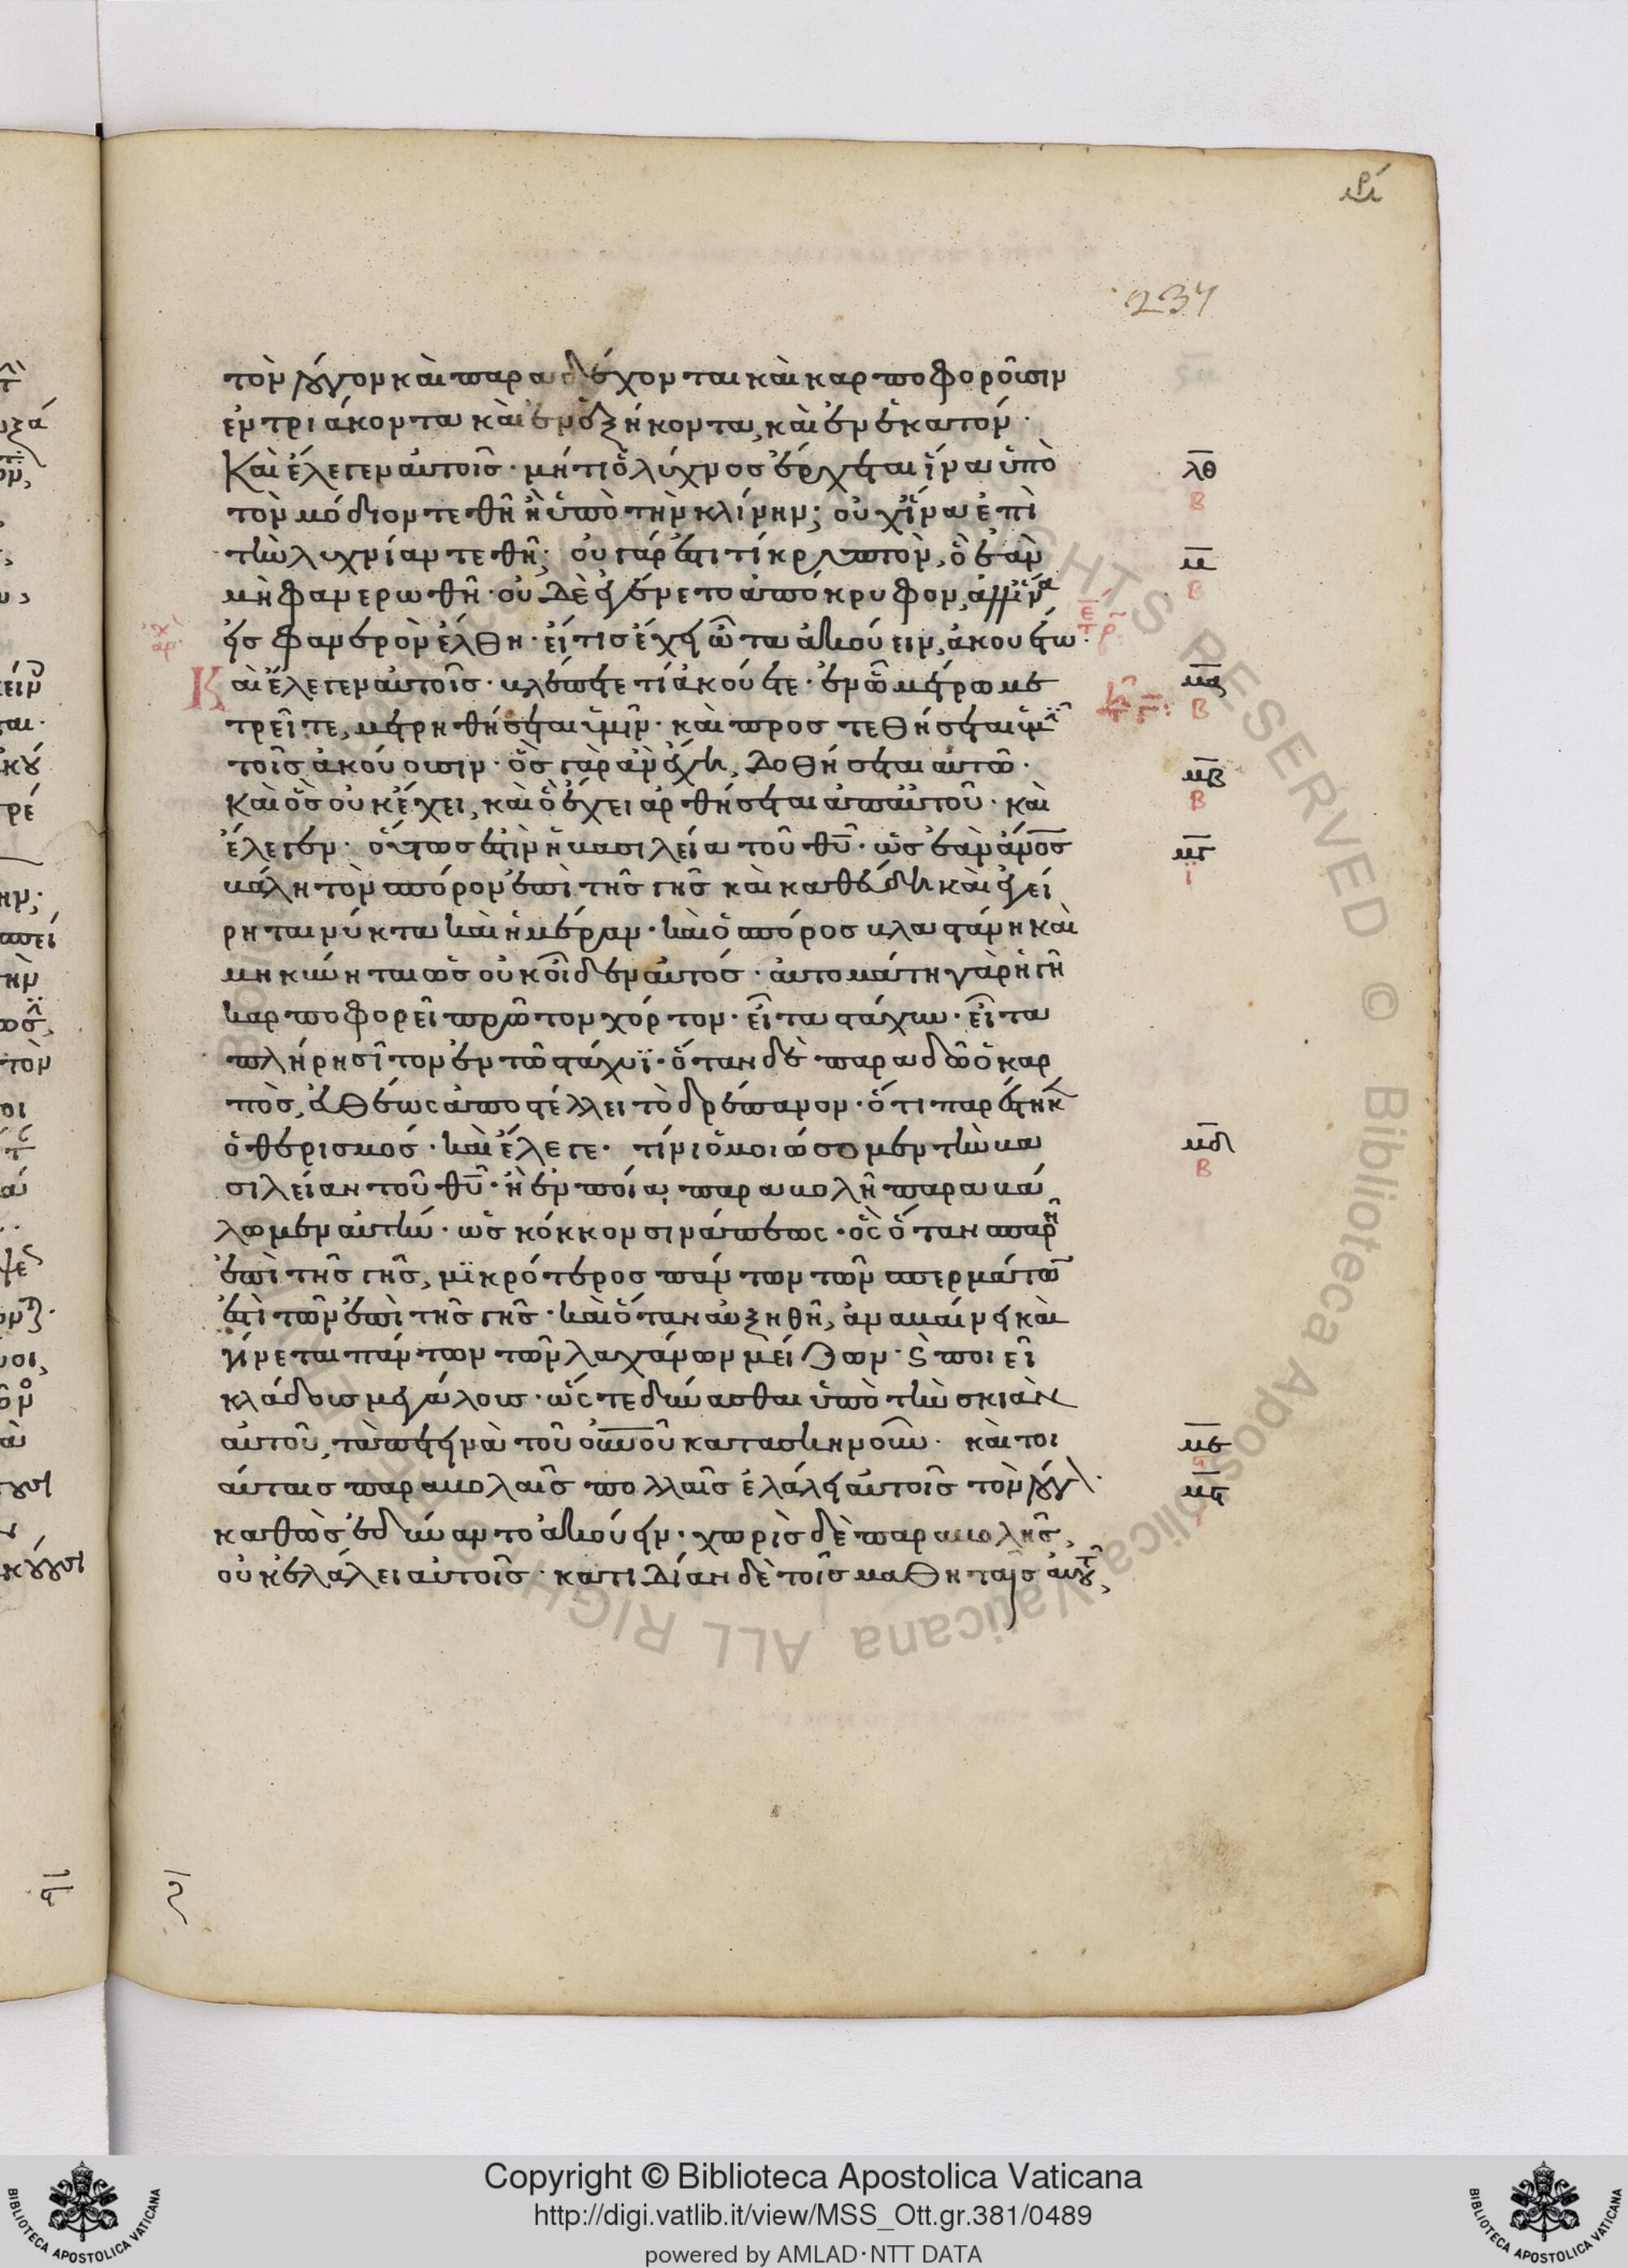 237
τὸν λόγον καὶ παραδέχονται καὶ καρποφοροῦσιν
ἐν τριάκοντα καὶ ἐν ἑξήκοντα, καὶ ἐν ἑκατόν·
Καὶ ἔλεγεν αὐτοῖς· μήτι ὁ λύχνος ἔρχεται ἵνα ὑπὸ
τὸν μόδιον τεθῆ ἢ ὑπὸ τὴν κλίνην; οὐχ ἵνα ἐπὶ
τὴν λυχνίαν τεθῆ; οὐ γάρ ἐστι τί κρυπτὸν, ὃ ἐὰν
μὴ φανερωθῆ· οὐδὲ ἐγένετο ἀπόκρυφον, ἀλλ' ἵνα
εἰς φανερὸν ἔλθη· εἴ τις ἔχει ὦτα ἀκούειν, ἀκουέτω·
Καὶ ἔλεγεν αὐτοῖς· βλέπετε τί ἀκούετε· ἐν ᾧ μέτρω με
τρεῖτε, μετρηθήσεται ὑμῖν· καὶ προστεθήσεται ὑμῖ
τοῖς ἀκούουσιν· ὃς γὰρ ἂν ἔχει, δοθήσεται αὐτῶ·
Καὶ ὃς οὐκ ἔχει, καὶ ὃ ἔχει ἀρθήσεται ἀπ' αὐτοῦ· καὶ
ἔλεγεν· οὕτως ἐστὶν ἡ βασιλεία τοῦ θῦ· ὡς ἐὰν ἄνος
βάλη τὸν σπόρον ἐπὶ τῆς γῆς καὶ καθεύδει καὶ ἐγεί
ρηται νύκτα καὶ ἡμέραν· καὶ ὁ σπόρος βλαστάνη καὶ
μηκύνηται ὡς οὐκ οἶδεν αὐτός· αὐτομάτη γὰρ ἡ γῆ
καρποφορεῖ πρῶτον χόρτον· εἶτα στάχυν· εἶτα
πλήρη σῖτον ἐν τῶ στάχυϊ· ὅταν δὲ παραδῶ ὁ καρ
πὸς, εὐθέως ἀποστέλλει τὸ δρέπανον· ὅτι παρέστηκ
ὁ θερισμός· καὶ ἔλεγε· τίνι ὁμοιώσομεν τὴν βα
σιλείαν τοῦ θῦ· ἢ ἐν ποία παραβολῆ παραβά
λωμεν αὐτήν· ὡς κόκκον σινάπεως· ὃς ὅταν σπαρῆ
ἐπὶ τῆς γῆς, μϊκρότερος πάντων τῶν σπερμάτω
ἐστὶ τῶν ἐπὶ τῆς γῆς· καὶ ὅταν αὐξηθῆ, ἀναβαίνει καὶ
γίνεται πάντων τῶν λαχάνων μείζων· ϗ ποιεῖ
κλάδους μεγάλους· ὥστε δύνασθαι ὑπὸ τὴν σκιὰν
αὐτοῦ, τὰ πετεινὰ τοῦ οὐνοῦ κατασκηνοῦν· καὶ τοι
αύταις παραβολαῖς πολλαῖς ἐλάλει αὐτοῖς τὸν λόγ
καθὼς ἐδύναντο ἀκούειν· χωρὶς δὲ παραβολῆς,
οὐκ ἐλάλει αὐτοῖς· κατιδίαν δὲ τοῖς μαθηταῖς αὐτου,
λθ
Β
μ
Β
μα
Β
μβ
Β
μγ
ι
μδ
Β
με
μϛ
BIBLIOTECA APOSTOLICA VATICANA
Copyright © Biblioteca Apostolica Vaticana
http://digi.vatlib.it/view/MSS_Ott.gr.381/0489
powered by AMLAD·NTT DATA
BIBLIOTECA APOSTOLICA VATICANA